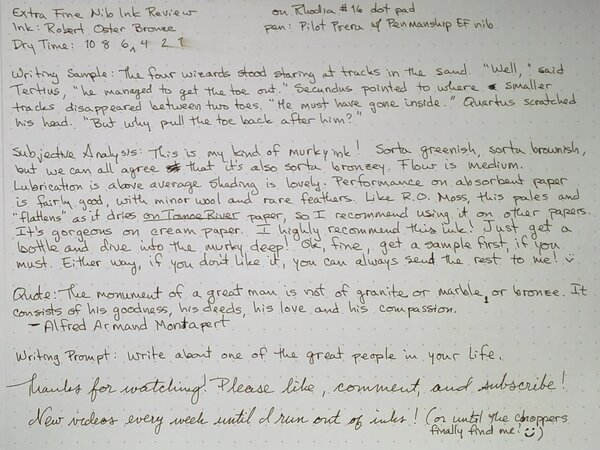 Extra Fine Nib Ink Review on Rhodia #16 dot pad
Ink: Robert Oster Bronze pen: Pilot Prera w/ Penmanship EF nib
Dry Time: 10 8 6 4 2 1
Writing Sample: The four wizards stood staring at tracks in the sand. "Well," said
Tertius, "he managed to get the toe out." Secundus pointed to where smaller
tracks disappeared between two toes. "He must have gone inside." Quartus scratched
his head. "But why pull the toe back after him?"
Subjective Analysis: This is my kind of murky ink! Sorta greenish, sorta brownish,
but we can all agree that it's also sorta bronzey. Flow is medium.
Lubrication is above average shading is lovely. Performance on absorbent paper
is fairly good, with minor wool and rare feathers. Like R.O. Moss, this pales and
"flattens" as it dries on Tomoe River paper, so I recommend using it on other papers.
It's gorgeous on cream paper. I highly recommend this ink! Just get a
bottle and dive into the murky deep! Ok, fine, get a sample first, if you
must. Either way, if you don't like it, you can always send the rest to me! :)
Quote: The monument of a great man is not of granite or marble or bronze. It
consists of his goodness, his deeds, his love and his compassion.
- Alfred Armand Montapert
Writing Prompt: Write about one of the great people in your life.
Thanks for watching! Please like, comment, and subscribe!
New videos every week until I run out of inks! (or until the choppers
finally find me! :))